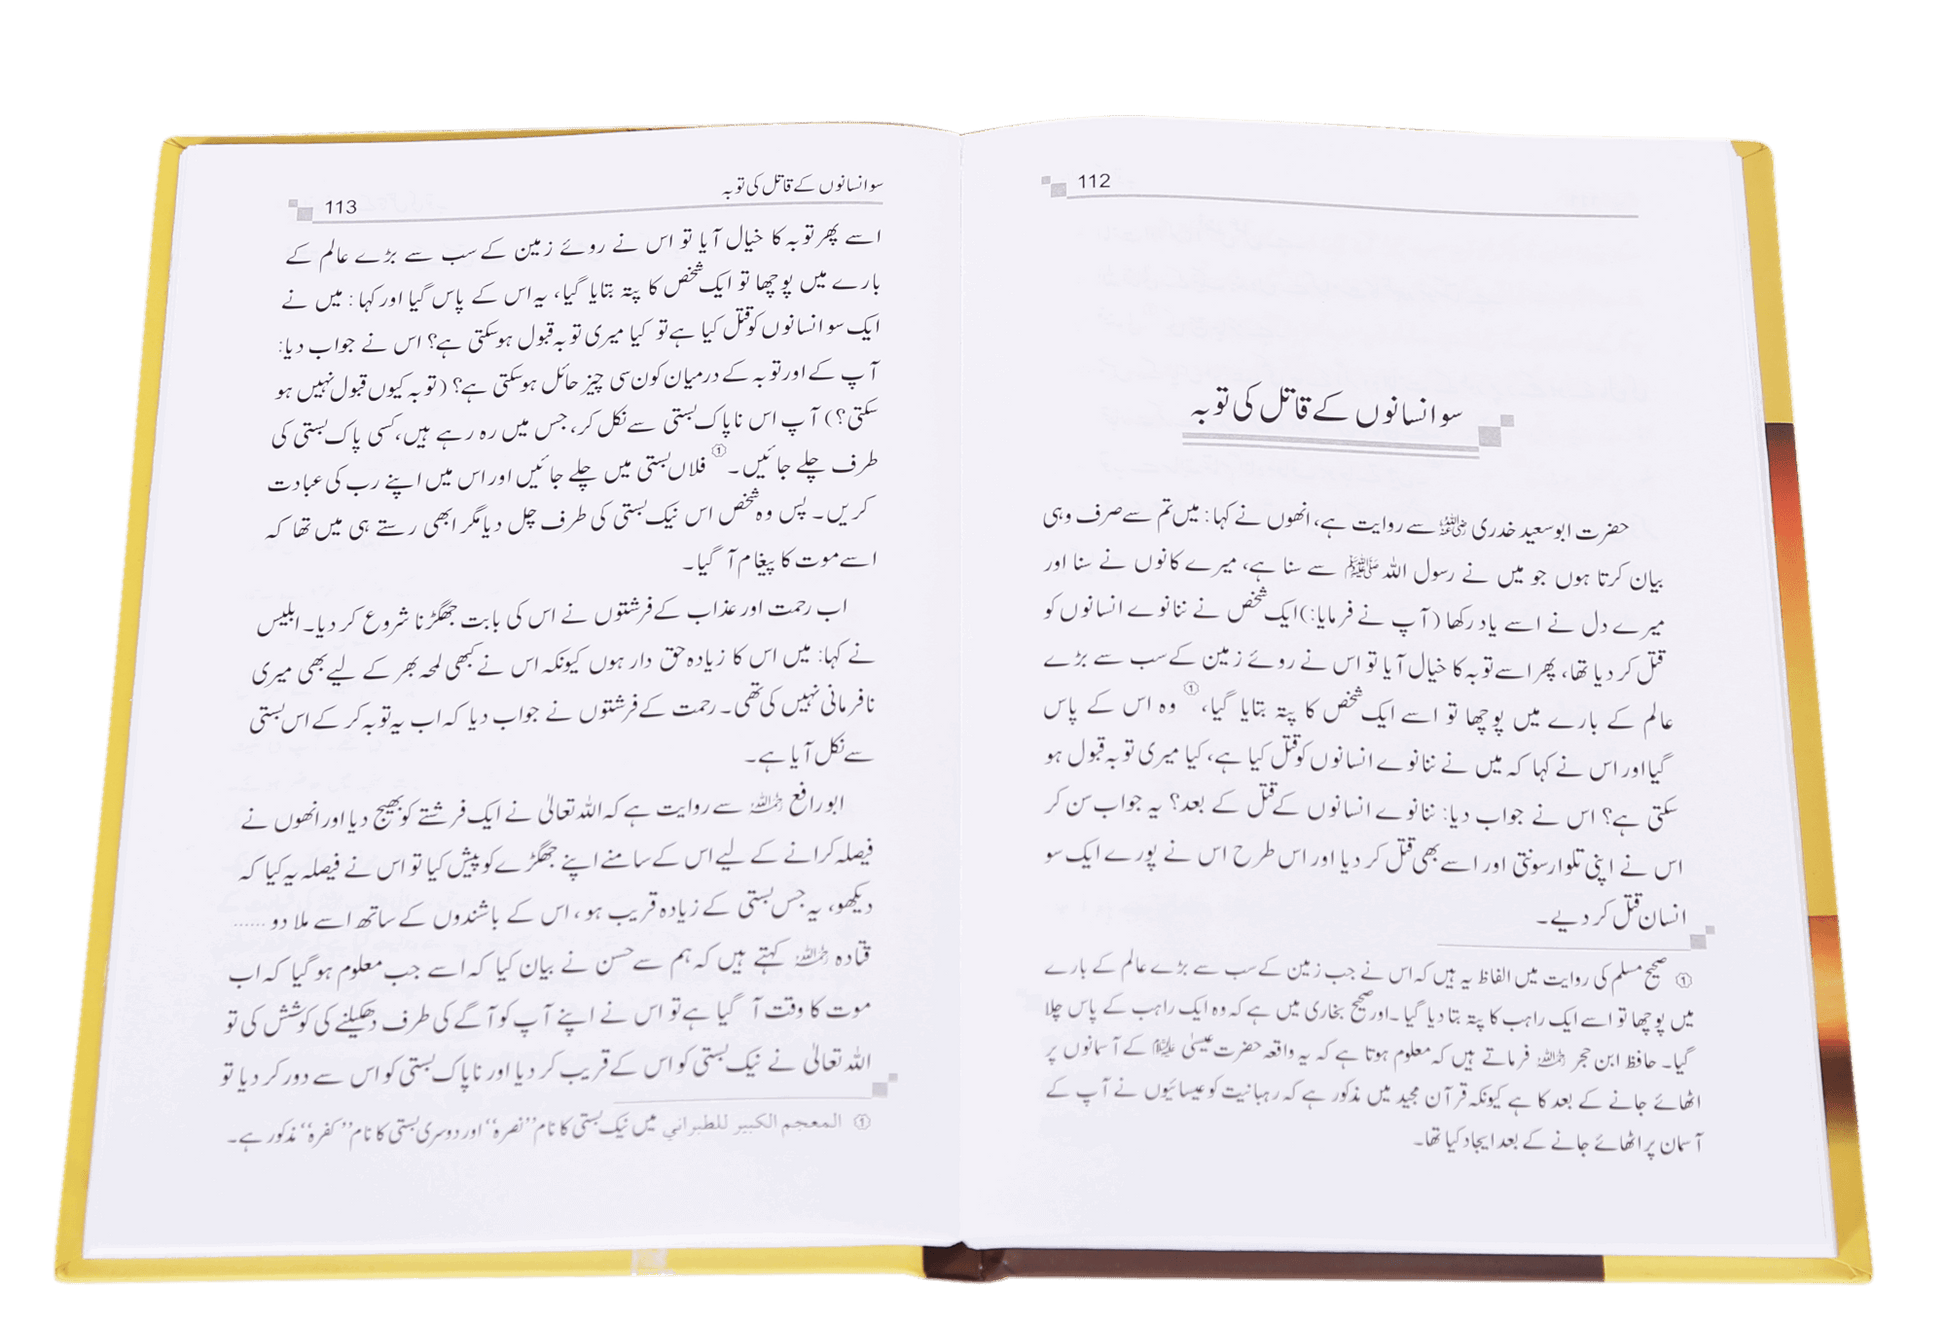 112
سو انسانوں کے قاتل کی توبہ
حضرت ابوسعید خدری رضی اللہ عنہ سے روایت ہے، انھوں نے کہا: میں تم سے صرف وہی
بیان کرتا ہوں جو میں نے رسول اللہ ﷺ سے سنا ہے، میرے کانوں نے سنا اور
میرے دل نے اسے یاد رکھا (آپ نے فرمایا:) ایک شخص نے ننانوے انسانوں کو
قتل کر دیا تھا، پھر اسے توبہ کا خیال آیا تو اس نے روئے زمین کے سب سے بڑے
عالم کے بارے میں پوچھا تو اسے ایک شخص کا پتہ بتایا گیا،① وہ اس کے پاس
گیا اور اس نے کہا کہ میں نے ننانوے انسانوں کو قتل کیا ہے، کیا میری توبہ قبول ہو
سکتی ہے؟ اس نے جواب دیا: ننانوے انسانوں کے قتل کے بعد؟ یہ جواب سن کر
اس نے اپنی تلوار سونتی اور اسے بھی قتل کر دیا اور اس طرح اس نے پورے ایک سو
انسان قتل کر دیے۔
① صحیح مسلم کی روایت میں الفاظ یہ ہیں کہ اس نے جب زمین کے سب سے بڑے عالم کے بارے
میں پوچھا تو اسے ایک راہب کا پتہ بتا دیا گیا۔ اور صحیح بخاری میں ہے کہ وہ ایک راہب کے پاس چلا
گیا۔ حافظ ابن حجر رحمہ اللہ فرماتے ہیں کہ معلوم ہوتا ہے کہ یہ واقعہ حضرت عیسیٰ علیہ السلام کے آسمانوں پر
اٹھائے جانے کے بعد کا ہے کیونکہ قرآن مجید میں مذکور ہے کہ رہبانیت کو عیسائیوں نے آپ کے
آسمان پر اٹھائے جانے کے بعد ایجاد کیا تھا۔
سو انسانوں کے قاتل کی توبہ
113
اسے پھر توبہ کا خیال آیا تو اس نے روئے زمین کے سب سے بڑے عالم کے
بارے میں پوچھا تو ایک شخص کا پتہ بتایا گیا، یہ اس کے پاس گیا اور کہا: میں نے
ایک سو انسانوں کو قتل کیا ہے تو کیا میری توبہ قبول ہو سکتی ہے؟ اس نے جواب دیا:
آپ کے اور توبہ کے درمیان کون سی چیز حائل ہو سکتی ہے؟ (توبہ کیوں قبول نہیں ہو
سکتی؟) آپ اس ناپاک بستی سے نکل کر، جس میں رہ رہے ہیں، کسی پاک بستی کی
طرف چلے جائیں۔① فلاں بستی میں چلے جائیں اور اس میں اپنے رب کی عبادت
کریں۔ پس وہ شخص اس نیک بستی کی طرف چل دیا مگر ابھی رستے ہی میں تھا کہ
اسے موت کا پیغام آ گیا۔
اب رحمت اور عذاب کے فرشتوں نے اس کی بابت جھگڑنا شروع کر دیا۔ ابلیس
نے کہا: میں اس کا زیادہ حق دار ہوں کیونکہ اس نے کبھی لمحہ بھر کے لیے بھی میری
نافرمانی نہیں کی تھی۔ رحمت کے فرشتوں نے جواب دیا کہ اب یہ توبہ کر کے اس بستی
سے نکل آیا ہے۔
ابورافع رحمہ اللہ سے روایت ہے کہ اللہ تعالیٰ نے ایک فرشتے کو بھیج دیا اور انھوں نے
فیصلہ کرانے کے لیے اس کے سامنے اپنے جھگڑے کو پیش کیا تو اس نے فیصلہ یہ کیا کہ
دیکھو، یہ جس بستی کے زیادہ قریب ہو، اس کے باشندوں کے ساتھ اسے ملا دو ......
قتادہ رحمہ اللہ کہتے ہیں کہ ہم سے حسن نے بیان کیا کہ اسے جب معلوم ہو گیا کہ اب
موت کا وقت آ گیا ہے تو اس نے اپنے آپ کو آگے کی طرف دھکیلنے کی کوشش کی تو
اللہ تعالیٰ نے نیک بستی کو اس کے قریب کر دیا اور ناپاک بستی کو اس سے دور کر دیا تو
① المعجم الكبير للطبراني میں نیک بستی کا نام ’’نصرہ‘‘ اور دوسری بستی کا نام ’’کفرہ‘‘ مذکور ہے۔